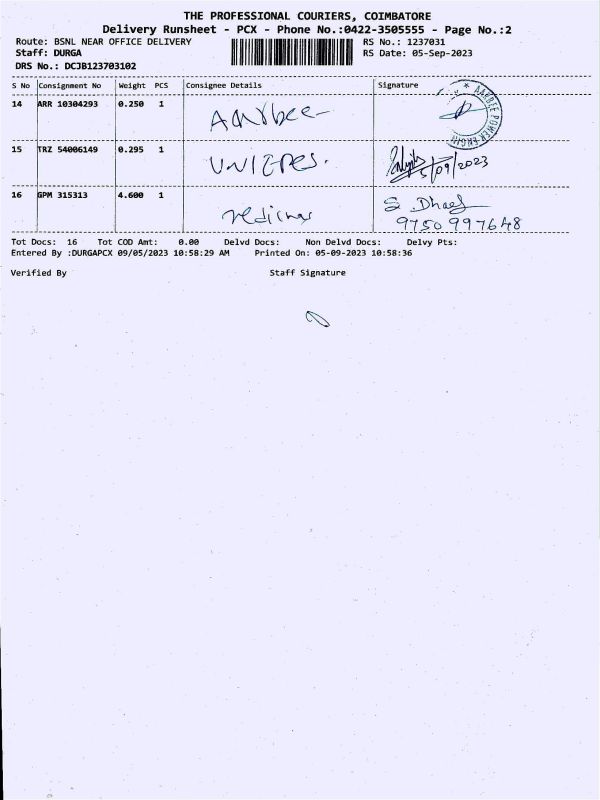 THE PROFESSIONAL COURIERS, COIMBATORE
Delivery Runsheet - PCX - Phone No.:0422-3505555 - Page No.:2
Route: BSNL NEAR OFFICE DELIVERY RS No.: 1237031
Staff: DURGA RS Date: 05-Sep-2023
DRS No.: DCJB123703102
S No Consignment No Weight PCS Consignee Details Signature
14 ARR 10304293 0.250 1 Aarbee
AARBEE POWER ENGIN
15 TRZ 54006149 0.295 1
5/09/2023
16 GPM 315313 4.600 1 S. Dhas
9750997648
Tot Docs: 16 Tot COD Amt: 0.00 Delvd Docs: Non Delvd Docs: Delvy Pts:
Entered By :DURGAPCX 09/05/2023 10:58:29 AM Printed On: 05-09-2023 10:58:36
Verified By Staff Signature